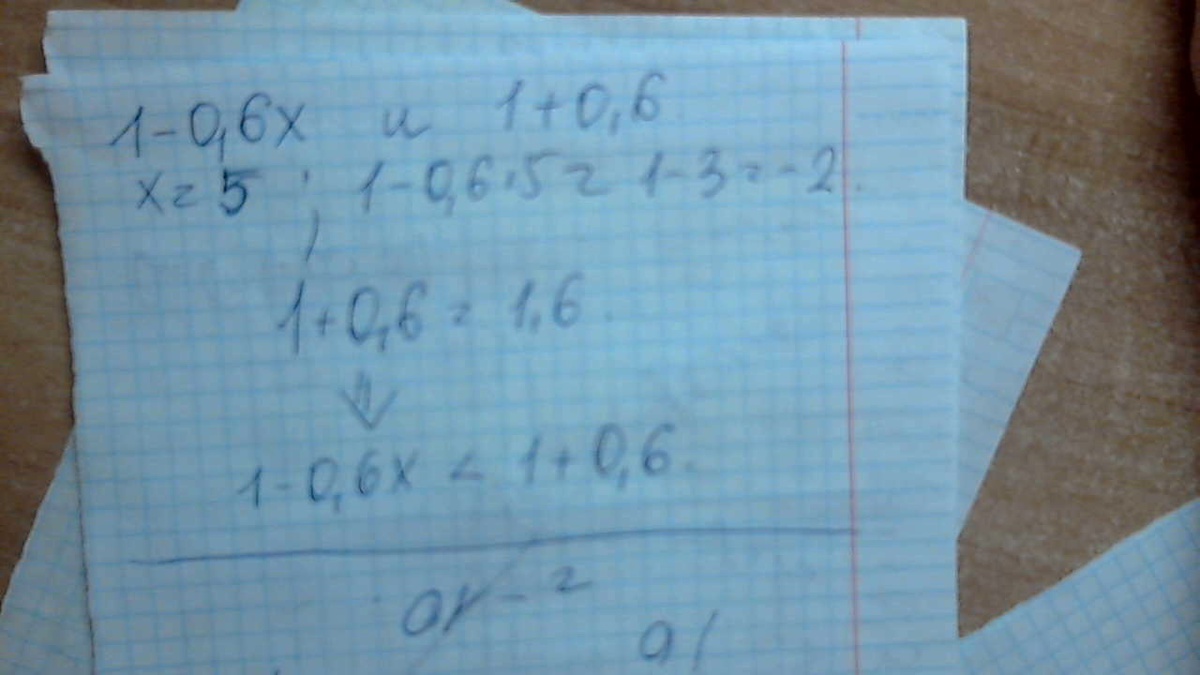 1-0,6x и 1+0,6
x=5; 1-0,6·5= 1-3=-2.
1+0,6= 1,6.
⇓
1-0,6x < 1+0,6.